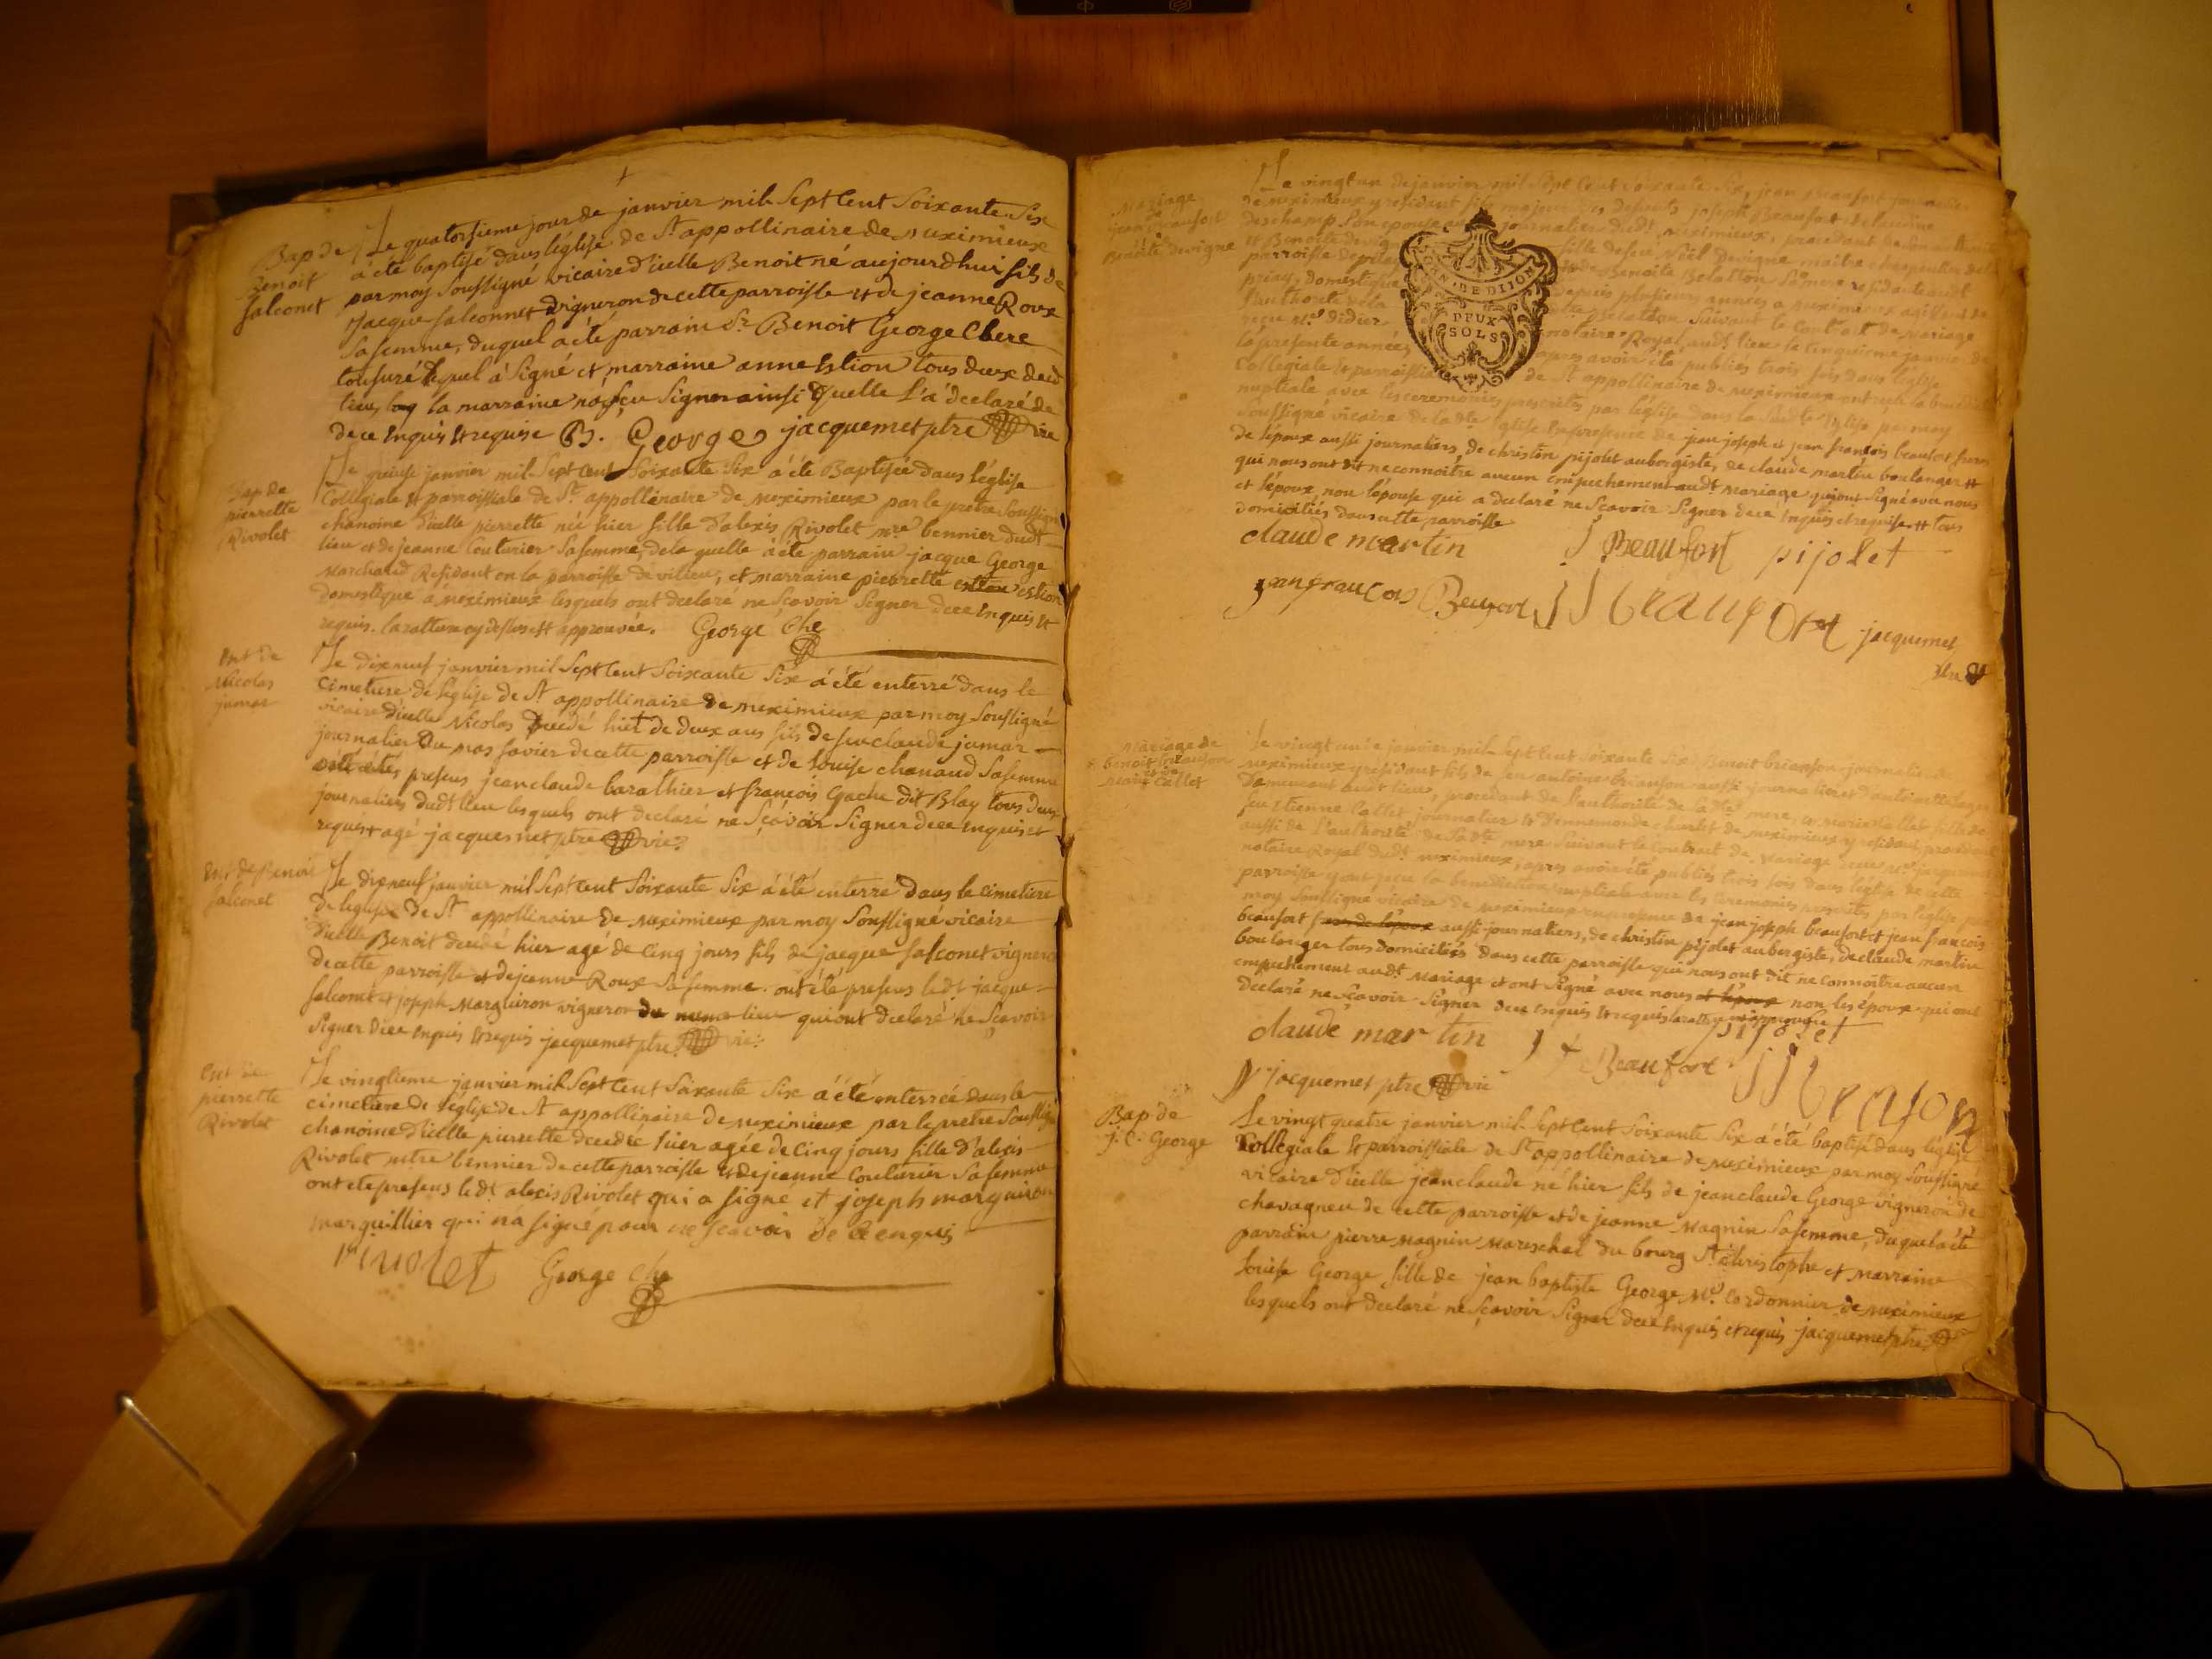 Bap de
Benoit
falconet
Le quatorsieme jour de janvier mil Sept Cent Soixante Six
à été baptisé dans l'église de St appollinaire de meximieux
par moy Soussigné vicaire d'icelle Benoit né aujourdhui fils de
Jacque falconnet vigneron de cette parroisse et de jeanne Roux
Sa femme, duquel à été parrain Sr Benoit George Clerc
tonsuré lequel à Signé et marraine anne Estion tous deux dud
lieu la marraine na Sçu Signer ainsi quelle l'a déclaré de
de ce enquis et requise B. George jacquemet ptre vire
Bap de
pierrette
Rivolet
Le quinse janvier mil Sept Cent Soixante Six à été Baptisée dans l'église
Collegiale et parroissiale de St appollinaire de meximieux par le pretre Soussigné
chanoine d'icelle pierrette née hier fille d'alexis Rivolet mre bennier dudt
lieu et de jeanne Couturier Sa femme, de la quelle à été parrain jacque George
Marchand Residant en la parroisse de vilieu, et marraine pierrette estion
domestique à meximieux lesquels ont declaré ne Sçavoir Signer de ce Enquis et
requis. la rature cy dessus est approuvée. George che
Ent de
Nicolas
jumar
Le dixneuf janvier mil Sept Cent Soixante Six à été enterré dans le
Cimetiere de l'eglise de St appollinaire de meximieux par moy Soussigné
vicaire d'icelle Nicolas decedé hier de deux ans fils de feu claude jumar
journalier du mas favier de cette parroisse et de Louise chanaud Sa femme
ont étés presens jean claude barathier et françois Gache dit Blay tous deux
journaliers dudt lieu lesquels ont declaré ne Sçavoir Signer de ce enquis et
requis agé jacquemet ptre vic?
Ent de Benoit
falconet
Le dixneuf janvier mil Sept Cent Soixante Six à été enterré dans le cimetiere
de leglise de St appollinaire de meximieux par moy Soussigné vicaire
d'icelle Benoit decedé hier agé de Cinq jours fils de jacque falconet vigneron
de cette parroisse et de jeanne Roux Sa femme. ont été presens ledt jacque
falconet et joseph Marguiron vigneron du meme lieu qui ont declaré ne Sçavoir
Signer de ce enquis et requis jacquemet ptre vic:
Ent de
pierrette
Rivolet
Le vingtieme janvier mil Sept Cent Soixante Six à été enterrée dans le
cimetiere de l'église de St appollinaire de meximieux par le pretre Soussigné
chanoine d'icelle pierrette decedée hier agée de Cinq jours fille d'alexis
Rivolet mtre bennier de cette parroisse et de jeanne Couturier Sa femme
ont ete presens ledt alexis Rivolet qui a signé et joseph marguiron
marguillier qui n'a signé pour ne scavoir de ce enquis
Rivolet George che
Mariage
de
jean Beaufort
Benoite devigne
Le vingt un de janvier mil Sept Cent Soixante Six jean Beaufort journalier
de meximieux y residant fils majeur des defunts joseph Beaufort et claudine
deschamp Son epouse journaliers dudt meximieux, procedant
et Benoite devigne fille de feu Noël Devigne maitre charpentier de la
parroisse de et de Benoite Belatton Sa mere residante audt
priay, domestique depuis plusieurs années a meximieux agissant de
l'authorité de la Belatton Suivant le Contract de Mariage
recu me didier notaire Royal audt lieu le Cinquieme janvier de
la presente année, apres avoir été publiés trois fois dans l'église
Collegiale et parroissiale de St appollinaire de meximieux ont reçu la benediction
nuptiale avec les ceremonies prescrites par l'église dans la Susdte Eglise par moy
Soussigné vicaire de la dte Eglise En presence de jean joseph et jean françois beaufort freres
de l'époux aussi journaliers, de christin pijolet aubergiste, de claude martin boulanger et
qui nous ont dit ne connoitre aucun empechement audt Mariage qui ont Signé avec nous
et l'epoux non l'épouse qui a declaré ne Sçavoir Signer de ce Enquis et requise et tous
domiciliés dans cette parroisse
GEN. DE DIJON
DEUX
SOLS
claude martin J Beaufort pijolet
jean françois Beaufort J J beaufort jacquemet
Mariage de
benoit brianson
et de
marie Callet
Le vingt un de janvier mil Sept Cent Soixante Six Benoit brianson journalier de
meximieux y residant fils de feu antoine brianson aussi journalier et d'antoinette
Demeurant audt lieu, procedant de l'authorité de la dte mere, et marie Callet fille de
feu Etienne Callet journalier et d'ennemonde charlet de meximieux y residant, procedant
aussi de l'authorité de Sa dte mere Suivant le Contract de Mariage recu me jacquemet
notaire Royal dudt meximieux, apres avoir été publiés trois fois dans l'église de cette
parroisse y ont reçu la benediction nuptiale avec les ceremonies prescrites par l'église
moy Soussigné vicaire de meximieux en presence de jean joseph beaufort et jean françois
beaufort freres de l'époux aussi journaliers, de christin pijolet aubergiste, de claude martin
boulanger tous domiciliés dans cette parroisse qui nous ont dit ne connoitre aucun
empechement audt Mariage et ont Signé avec nous et l'époux non les époux qui ont
declaré ne Sçavoir Signer de ce enquis et requis la rature approuvée
claude martin J f Beaufort pijolet
jacquemet ptre vic J J beafort
Bap de
j. C. George
Le vingt quatre janvier mil Sept Cent Soixante Six à été baptisé dans l'église
Collegiale et parroissiale de St appollinaire de meximieux par moy Soussigné
vicaire d'icelle jean claude né hier fils de jean claude George vigneron de
chavagneu de cette parroisse et de jeanne Magnin Sa femme, duquel à été
parrain pierre Magnin Mareschal du bourg St christophe et marraine
Louise George fille de jean baptiste George Me Cordonnier de meximieux
lesquels ont declaré ne Sçavoir Signer de ce Enquis et requis jacquemet ptre